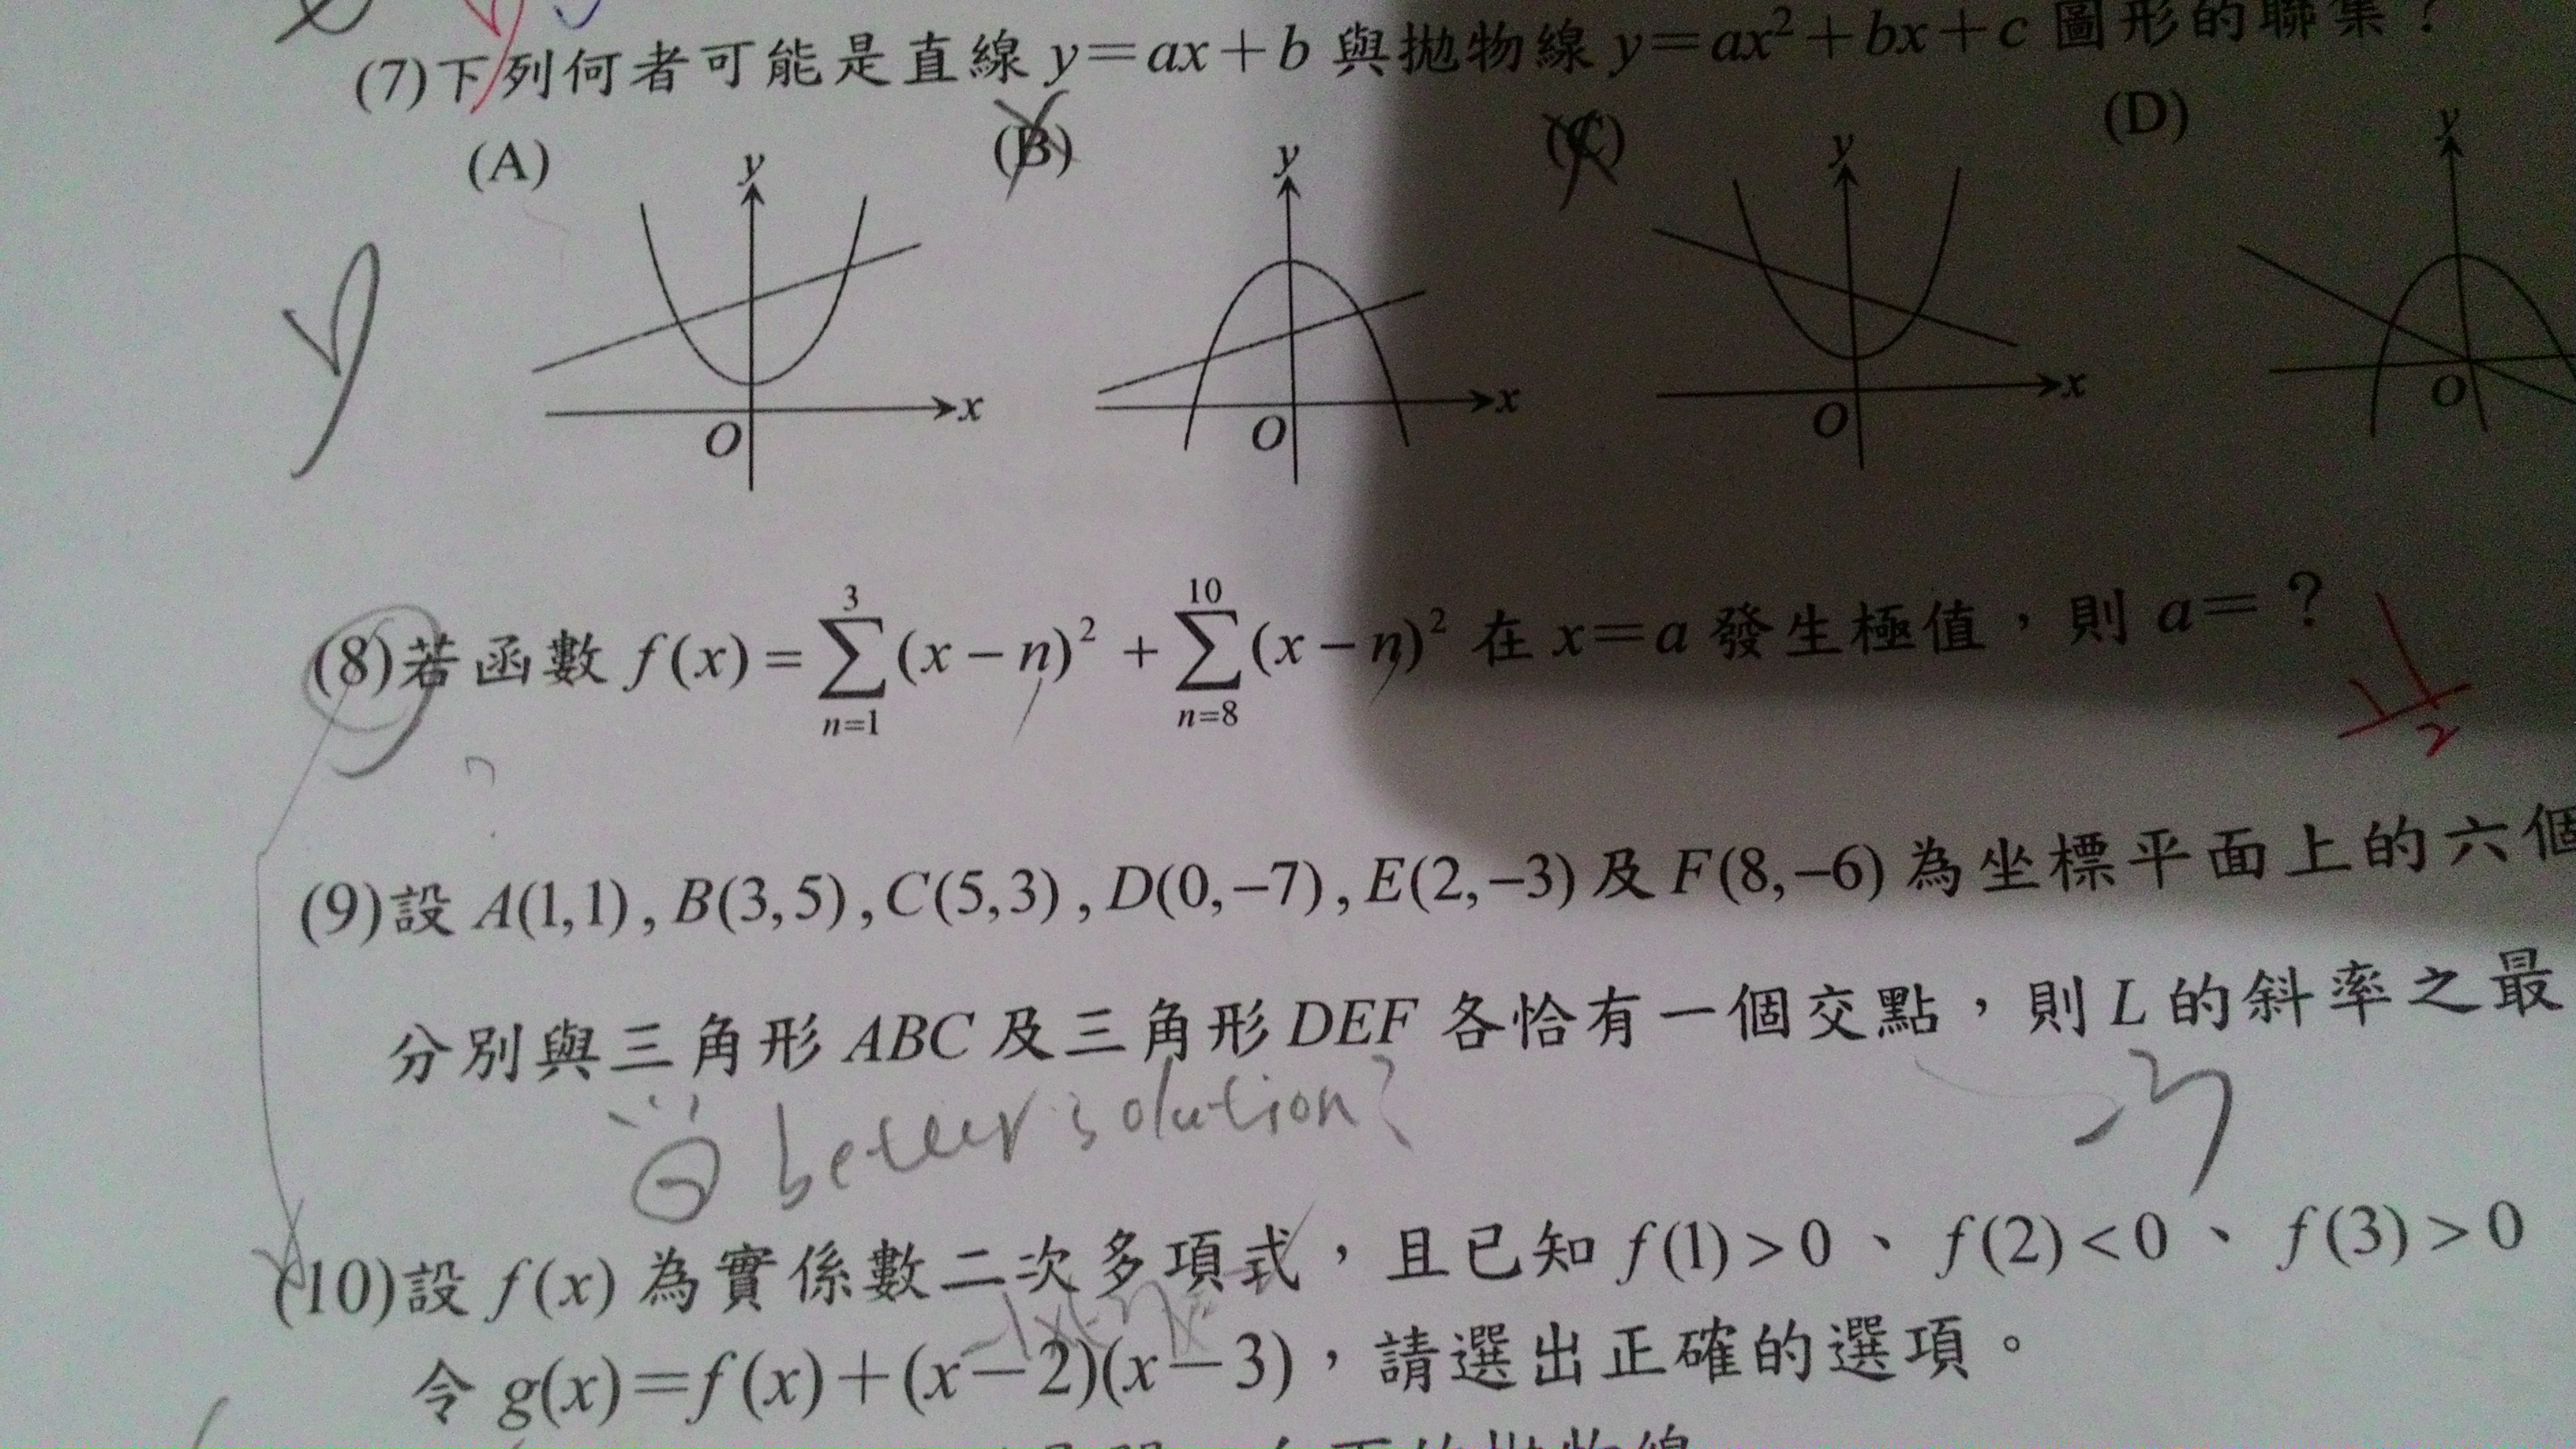 (7)下列何者可能是直線 y=ax+b 與拋物線 y=ax²+bx+c 圖形的聯集？
(A) (B) (C) (D)
y y y y
x x x
O O O O
(8)若函數 f(x)=∑_{n=1}^{3}(x-n)²+∑_{n=8}^{10}(x-n)² 在 x=a 發生極值，則 a=？
(9)設 A(1,1),B(3,5),C(5,3),D(0,-7),E(2,-3)及F(8,-6)為坐標平面上的六個
分別與三角形ABC及三角形DEF各恰有一個交點，則L的斜率之最
better solution?
(10)設 f(x)為實係數二次多項式，且已知 f(1)>0、f(2)<0、f(3)>0
令 g(x)=f(x)+(x-2)(x-3)，請選出正確的選項。